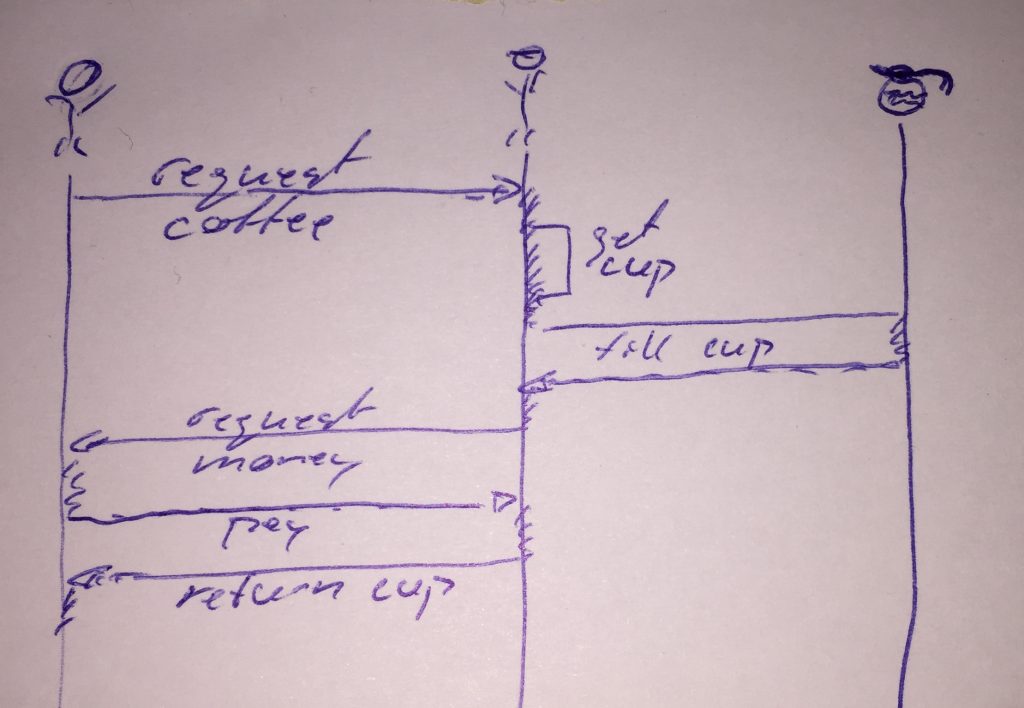 request
coffee
get
cup
fill cup
request
money
pay
return cup